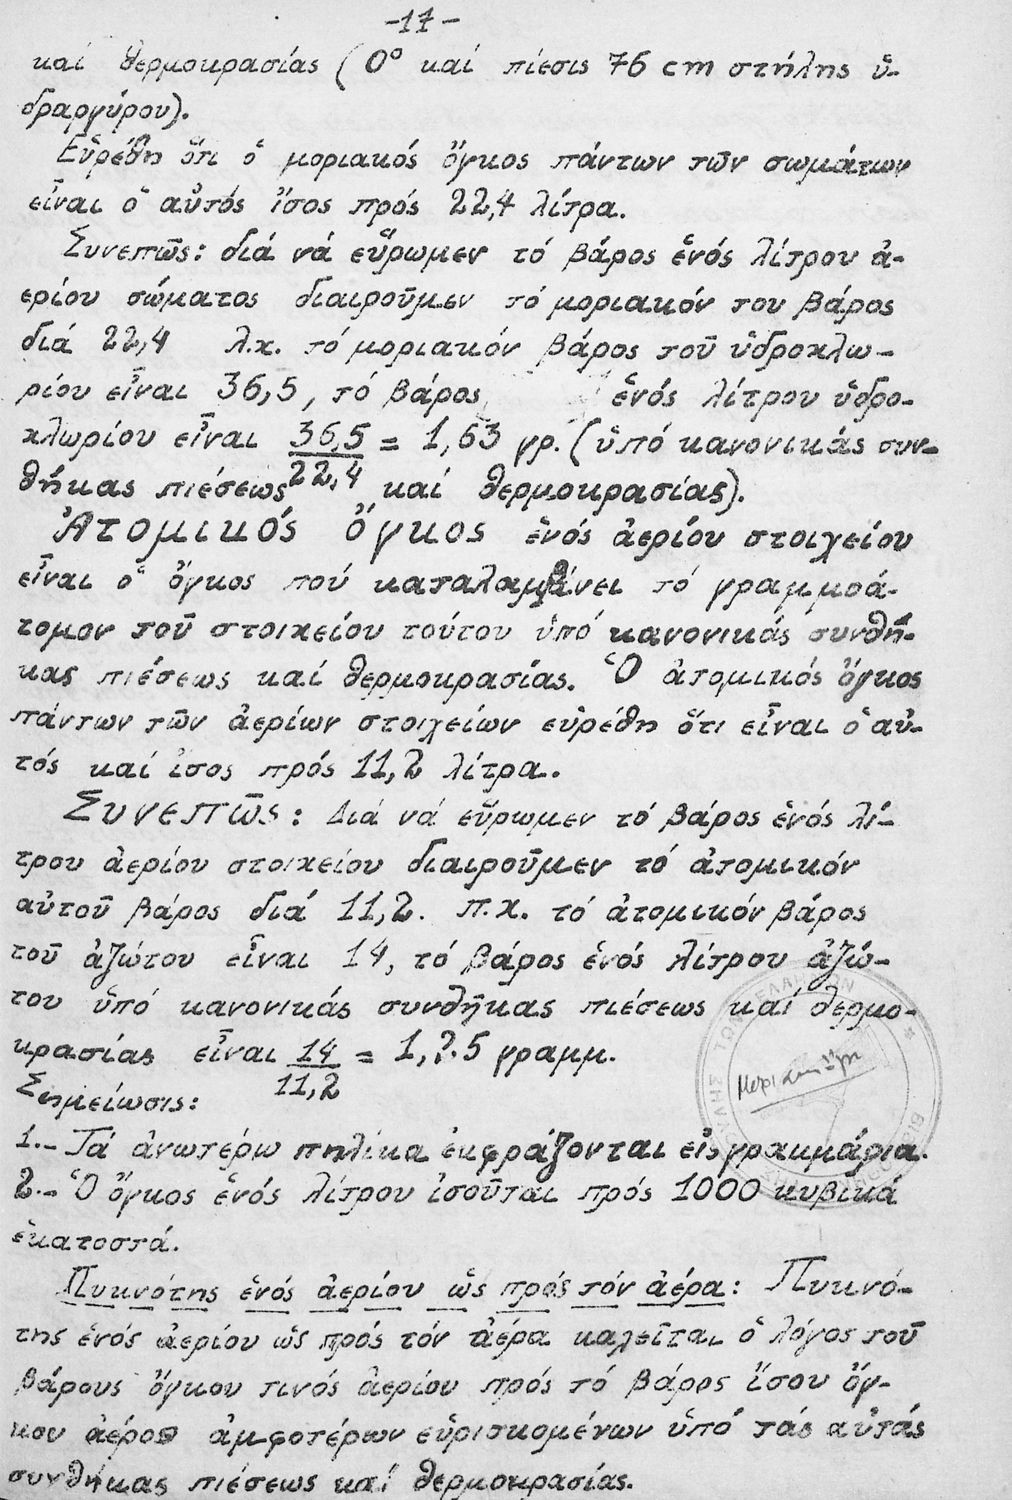 -17-
καί θερμοκρασίας (0° καί πίεσις 76 cm στήλης ὑ-
δραργύρου).
Εὑρέθη ὅτι ὁ μοριακός ὄγκος πάντων τῶν σωμάτων
εἶναι ὁ αὐτός ἴσος πρός 22,4 λίτρα.
Συνεπῶς: διά νά εὕρωμεν τό βάρος ἑνός λίτρου ἀ-
ερίου σώματος διαιροῦμεν τό μοριακόν του βάρος
διά 22,4 λ.χ. τό μοριακόν βάρος τοῦ ὑδροχλω-
ρίου εἶναι 36,5, τό βάρος ἑνός λίτρου ὑδρο-
χλωρίου εἶναι 36,5/22,4 = 1,63 γρ. (ὑπό κανονικάς συν-
θήκας πιέσεως καί θερμοκρασίας).
Ἀτομικός ὄγκος ἑνός ἀερίου στοιχείου
εἶναι ὁ ὄγκος πού καταλαμβάνει τό γραμμοά-
τομον τοῦ στοιχείου τούτου ὑπό κανονικάς συνθή-
κας πιέσεως καί θερμοκρασίας. Ὁ ἀτομικός ὄγκος
πάντων τῶν ἀερίων στοιχείων εὑρέθη ὅτι εἶναι ὁ αὐ-
τός καί ἴσος πρός 11,2 λίτρα.
Συνεπῶς: Διά νά εὕρωμεν τό βάρος ἑνός λί-
τρου ἀερίου στοιχείου διαιροῦμεν τό ἀτομικόν
αὐτοῦ βάρος διά 11,2. π.χ. τό ἀτομικόν βάρος
τοῦ ἀζώτου εἶναι 14, τό βάρος ἑνός λίτρου ἀζώ-
του ὑπό κανονικάς συνθῆκας πιέσεως καί θερμο-
κρασίας εἶναι 14/11,2 = 1,?.5 γραμμ.
Σημείωσις:
1.- Τά ἀνωτέρω πηλίκα ἐκφράζονται εἰς γραμμάρια.
2.- Ὁ ὄγκος ἑνός λίτρου ἰσοῦται πρός 1000 κυβικά
ἑκατοστά.
Πυκνότης ἑνός ἀερίου ὡς πρός τόν ἀέρα: Πυκνό-
της ἑνός ἀερίου ὡς πρός τόν ἀέρα καλεῖται ὁ λόγος τοῦ
βάρους ὄγκου τινός ἀερίου πρός τό βάρος ἴσου ὄγ-
κου ἀέρος ἀμφοτέρων εὑρισκομένων ὑπό τάς αὐτάς
συνθήκας πιέσεως καί θερμοκρασίας.